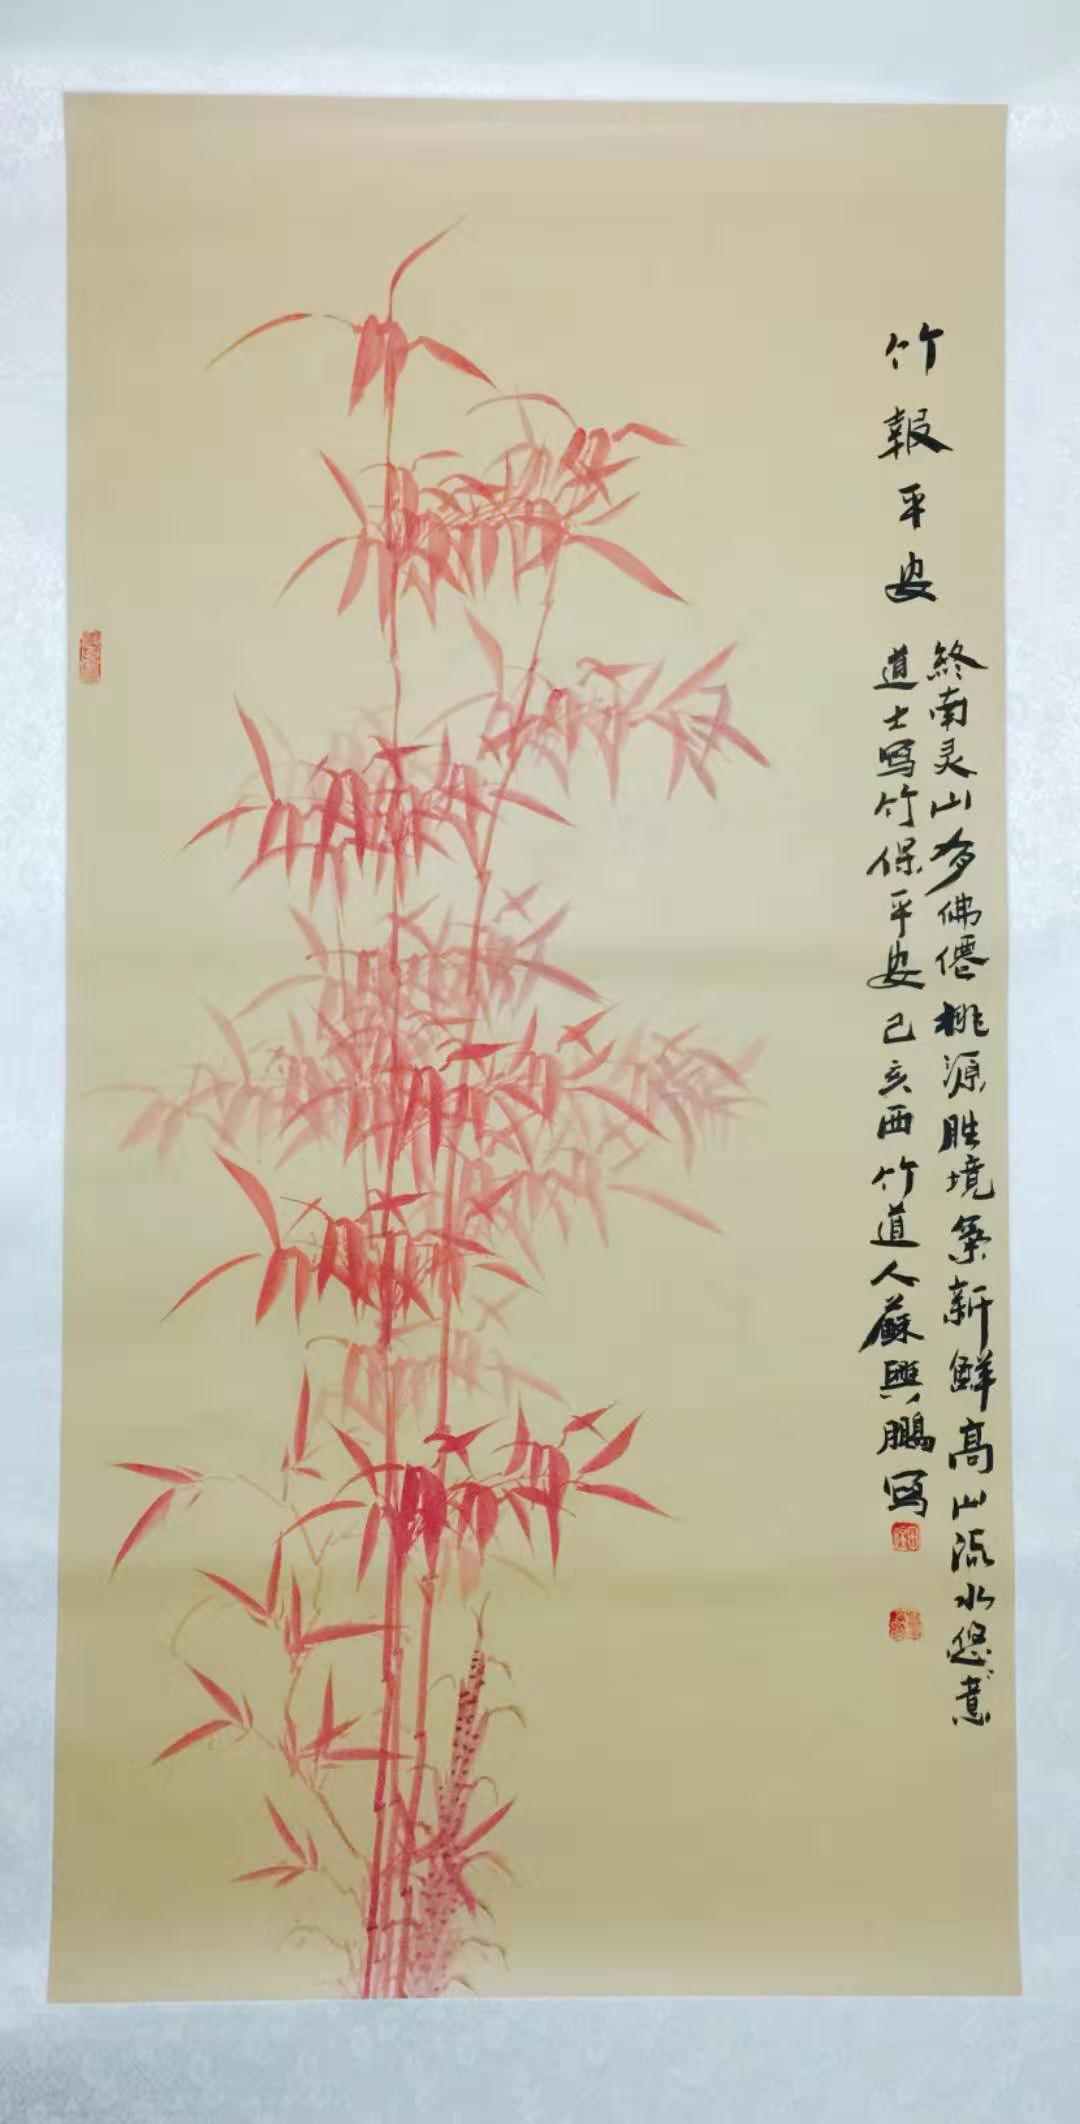 竹報平安
終南灵山多佛僊桃源胜境築新鮮高山流水悠意
道士写竹保平安己亥西竹道人蘇興鵬写